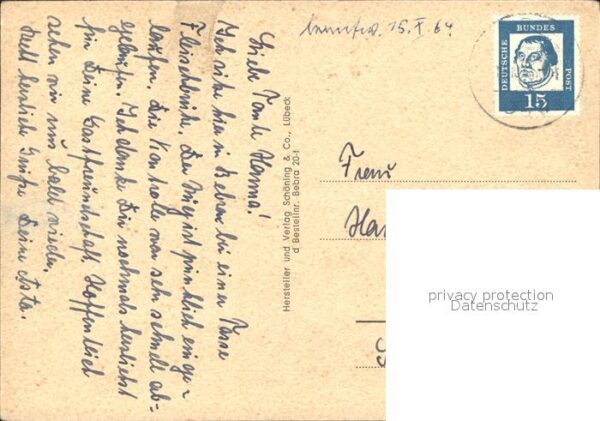 15. I. 64
DEUTSCHE BUNDES POST
15
Liebe Tante Hanna!
Ich sitze hier in Bebra bei einer Tasse
Fleischbrühe. Der Zug ist pünktlich einge=
laufen. Die Kontrolle war sehr schnell ab-
gelaufen. Ich danke Dir nochmals herzlichst
für Deine Gastfreundschaft. Hoffentlich
sehen wir uns bald wieder.
Recht herzliche Grüße Deine Asta.
Hersteller und Verlag Schöning & Co., Lübeck
d Bestellnr. Bebra 20-1
Frau
privacy protection
Datenschutz